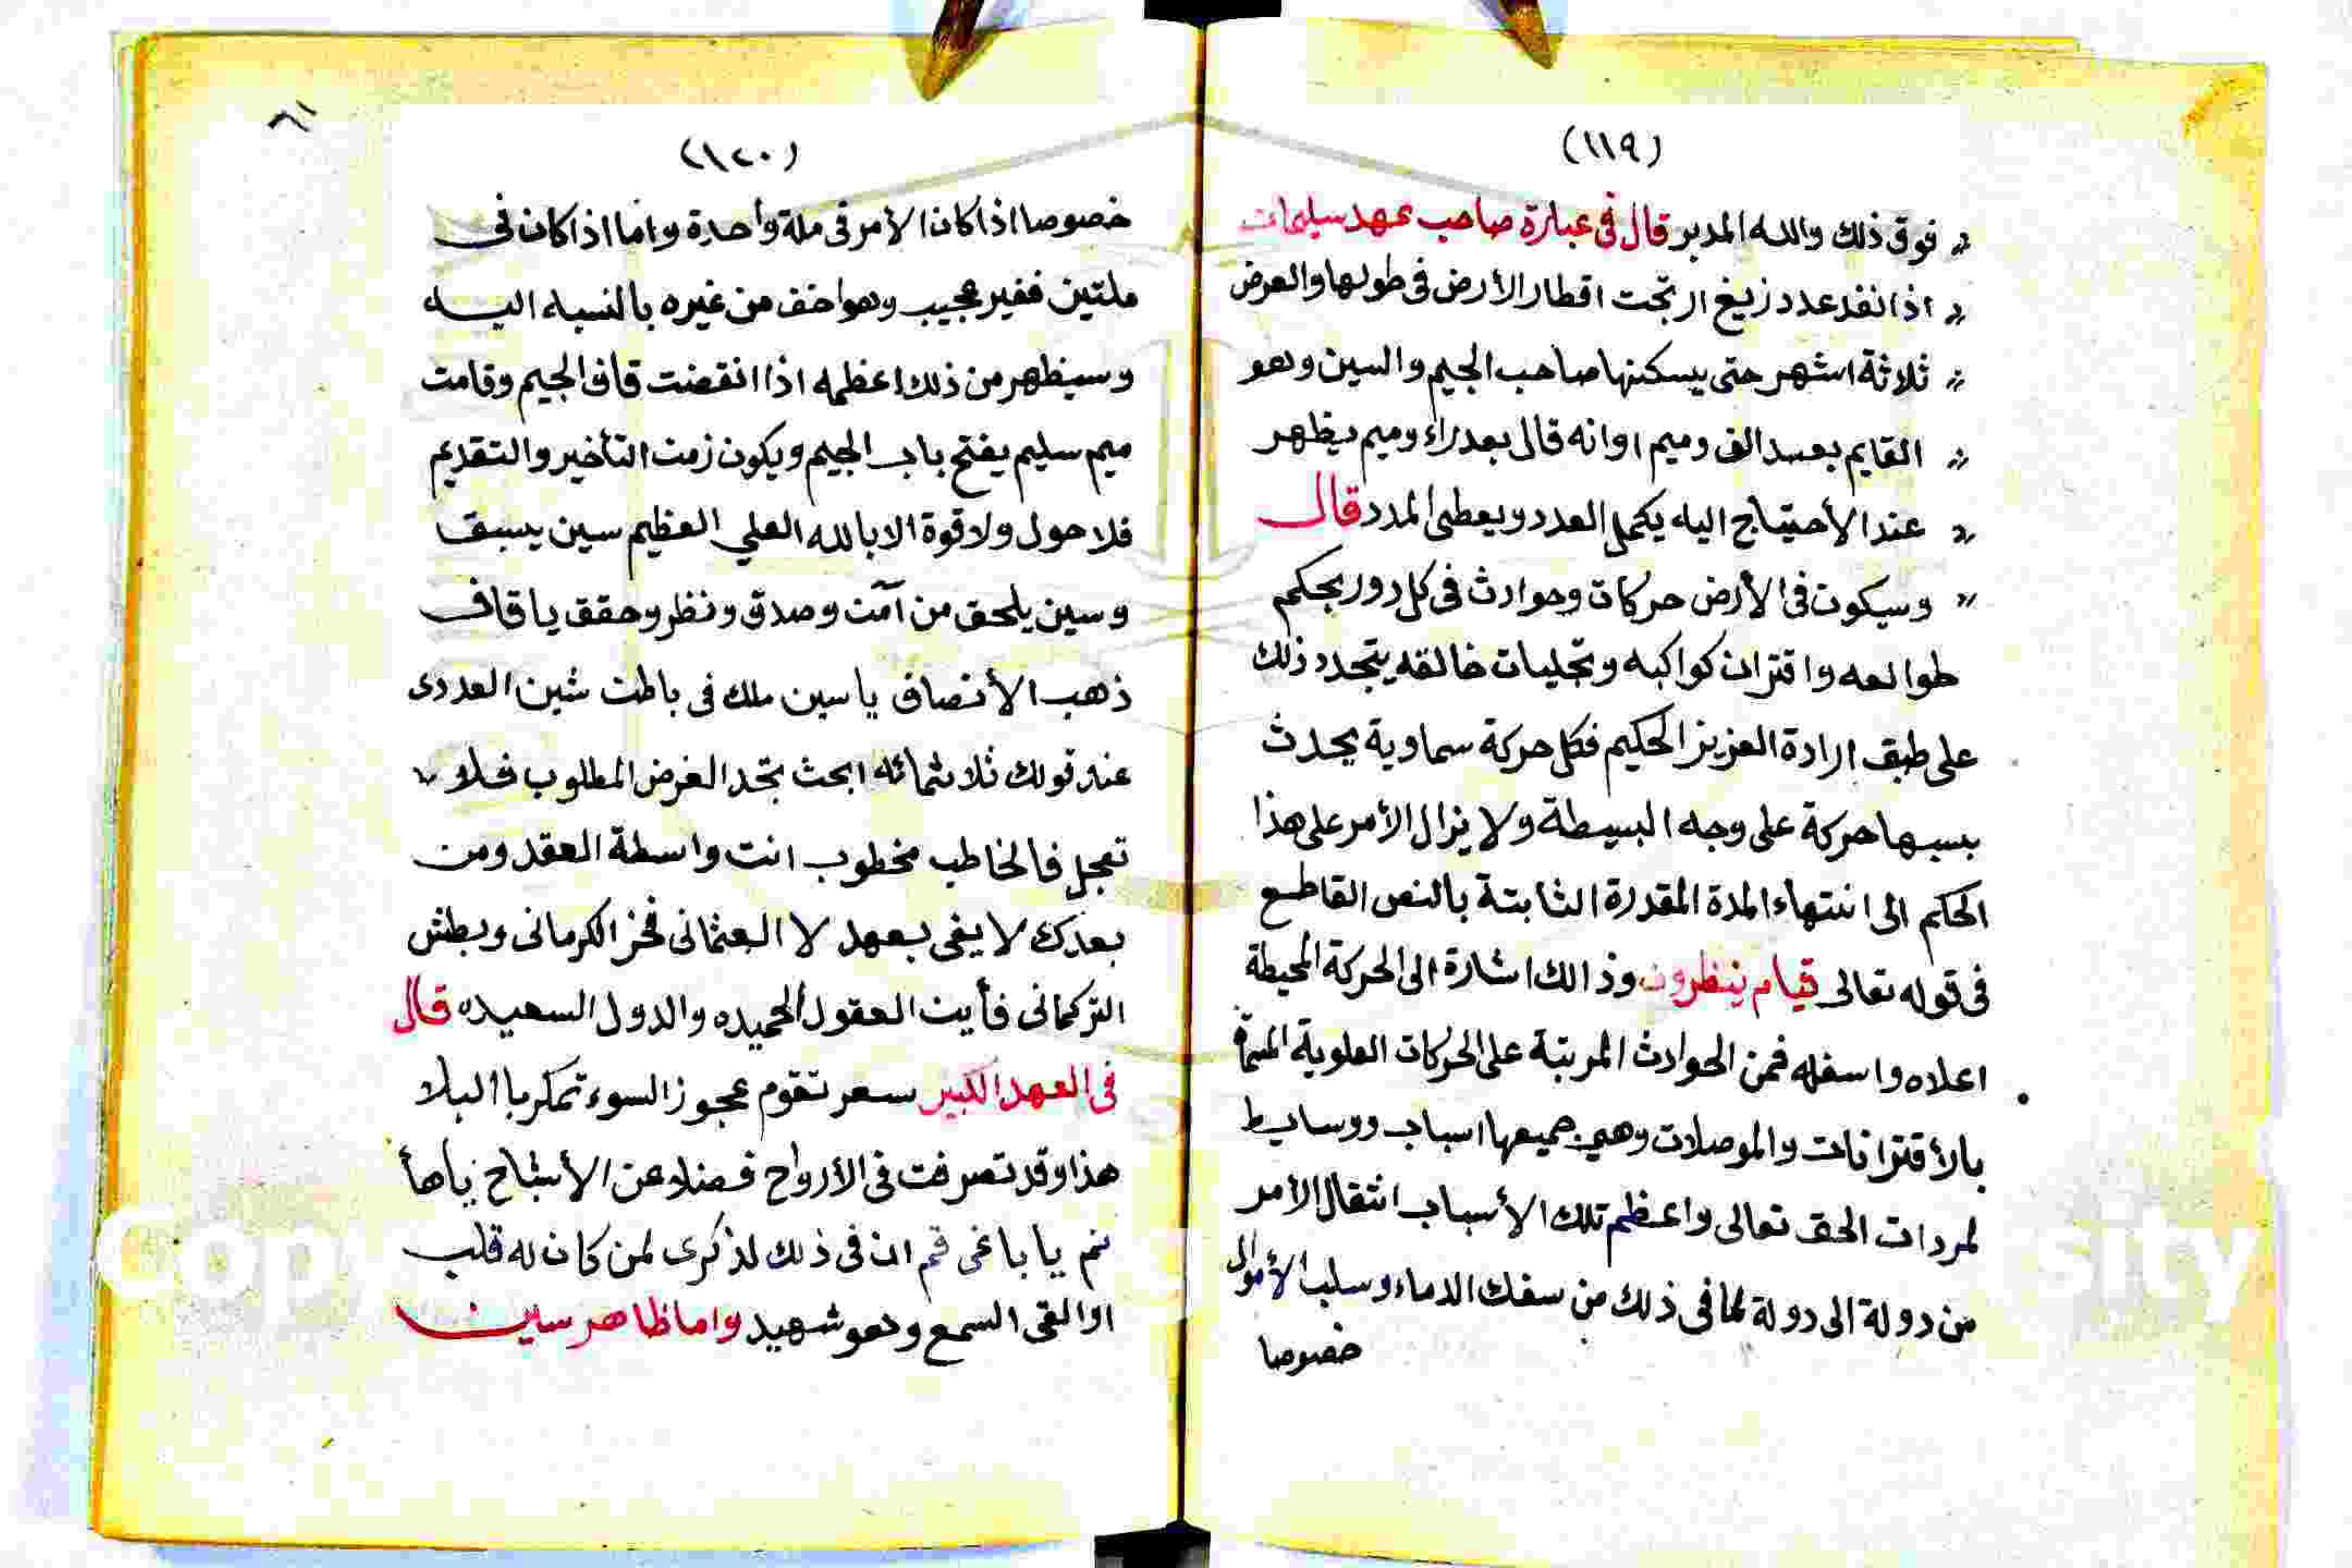 (١١٩)
" فوق ذلك والله المدبر قال في عبارة صاحب عهد سليمان
" اذا نفد عدد زيغ ارتجت اقطار الأرض في طولها والعرض
" ثلاثة اشهر حتى يسكنها صاحب الجيم والسين وهو
" القايم بعد الف وميم اوانه قال بعد راء وميم يظهر
" عند الأحتياج اليه يكمل العدد ويعطى المدد قال
" وسيكون في الأرض حركات وحوادث في كل دور بحكم
طوالعه واقتران كواكبه وتجليات خالقه يتجدد ذلك
على طبق ارادة العزيز الحكيم فكل حركة سماوية يحدث
بسببها حركة على وجه البسيطة ولا يزال الأمر على هذا
الحكم الى انتهاء المدة المقدرة الثابتة بالنص القاطع
في قوله تعالى قيام ينظرون وذالك اشارة الى الحركة المحيطة
اعلاه واسفله فمن الحوادث المرتبة على الحركات العلوية المسماة
بالأقترانات والموصلات وهي جميعها اسباب ووسايط
لمردات الحق تعالى واعظم تلك الأسباب انتقال الأمر
من دولة الى دولة لما في ذلك من سفك الدماء وسلب الأموال
خصوصا
٦١
(١٢٠)
خصوصا اذا كان الأمر في ملة واحدة واما اذا كان في
ملتين فغير عجيب وهو اخف من غيره بالنسبه اليه
وسيظهر من ذلك اعظمه اذا انقضت قاف الجيم وقامت
ميم سليم يفتح باب الجيم ويكون زمن التأخير والتقديم
فلا حول ولا قوة الا بالله العلي العظيم سين يسبق
وسين يلحق من آمن وصدق ونظر وحقق يا قاف
ذهب الأنصاف يا سين ملك في باطن شين العددى
عند قولك ثلاثمائه ابحث تجد الغرض المطلوب فلا
تعجل فالخاطب مخطوب انت واسطة العقد ومن
بعدك لا يفى بعهد لا العثمانى فخر الكرمانى وبطش
التركمانى فأين العقول الحميده والدول السعيده قال
في العهد الكبير سعر تقوم عجوز السوء تمكر با البلا
هذا وقد تصرفت في الأرواح فضلا عن الأشباح زباها
نم يا باغى قم ان في ذلك لذكرى لمن كان له قلب
او القى السمع وهو شهيد واما ظاهر سين